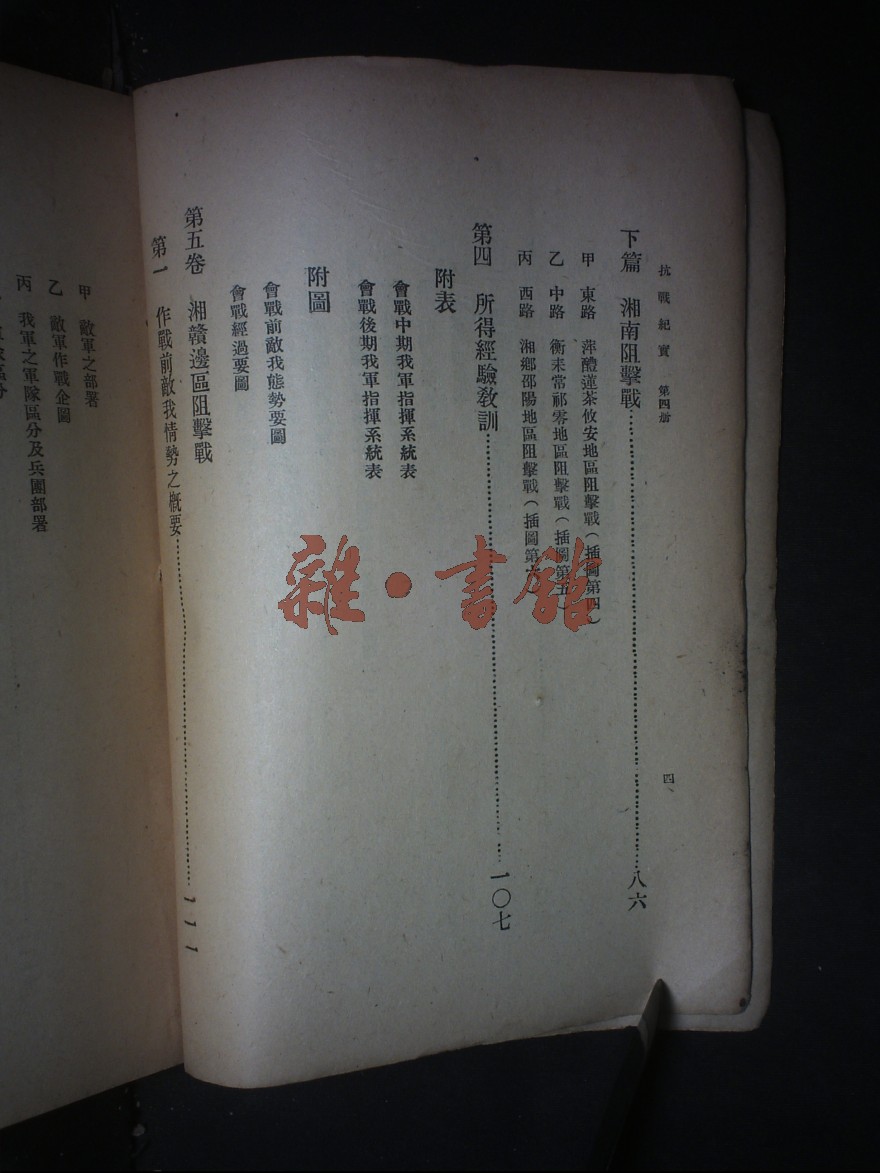 抗戰紀實 第四册
四
下篇 湘南阻擊戰……八六
甲 東路 萍醴蓮茶攸安地區阻擊戰(插圖第四)
乙 中路 衡耒常祁零地區阻擊戰(插圖第五)
丙 西路 湘鄉邵陽地區阻擊戰(插圖第六)
第四 所得經驗教訓……一〇七
附表
會戰中期我軍指揮系統表
會戰後期我軍指揮系統表
附圖
會戰前敵我態勢要圖
會戰經過要圖
第五卷 湘贛邊區阻擊戰
第一 作戰前敵我情勢之概要……一一一
甲 敵軍之部署
乙 敵軍作戰企圖
丙 我軍之軍隊區分及兵團部署
雜·書館